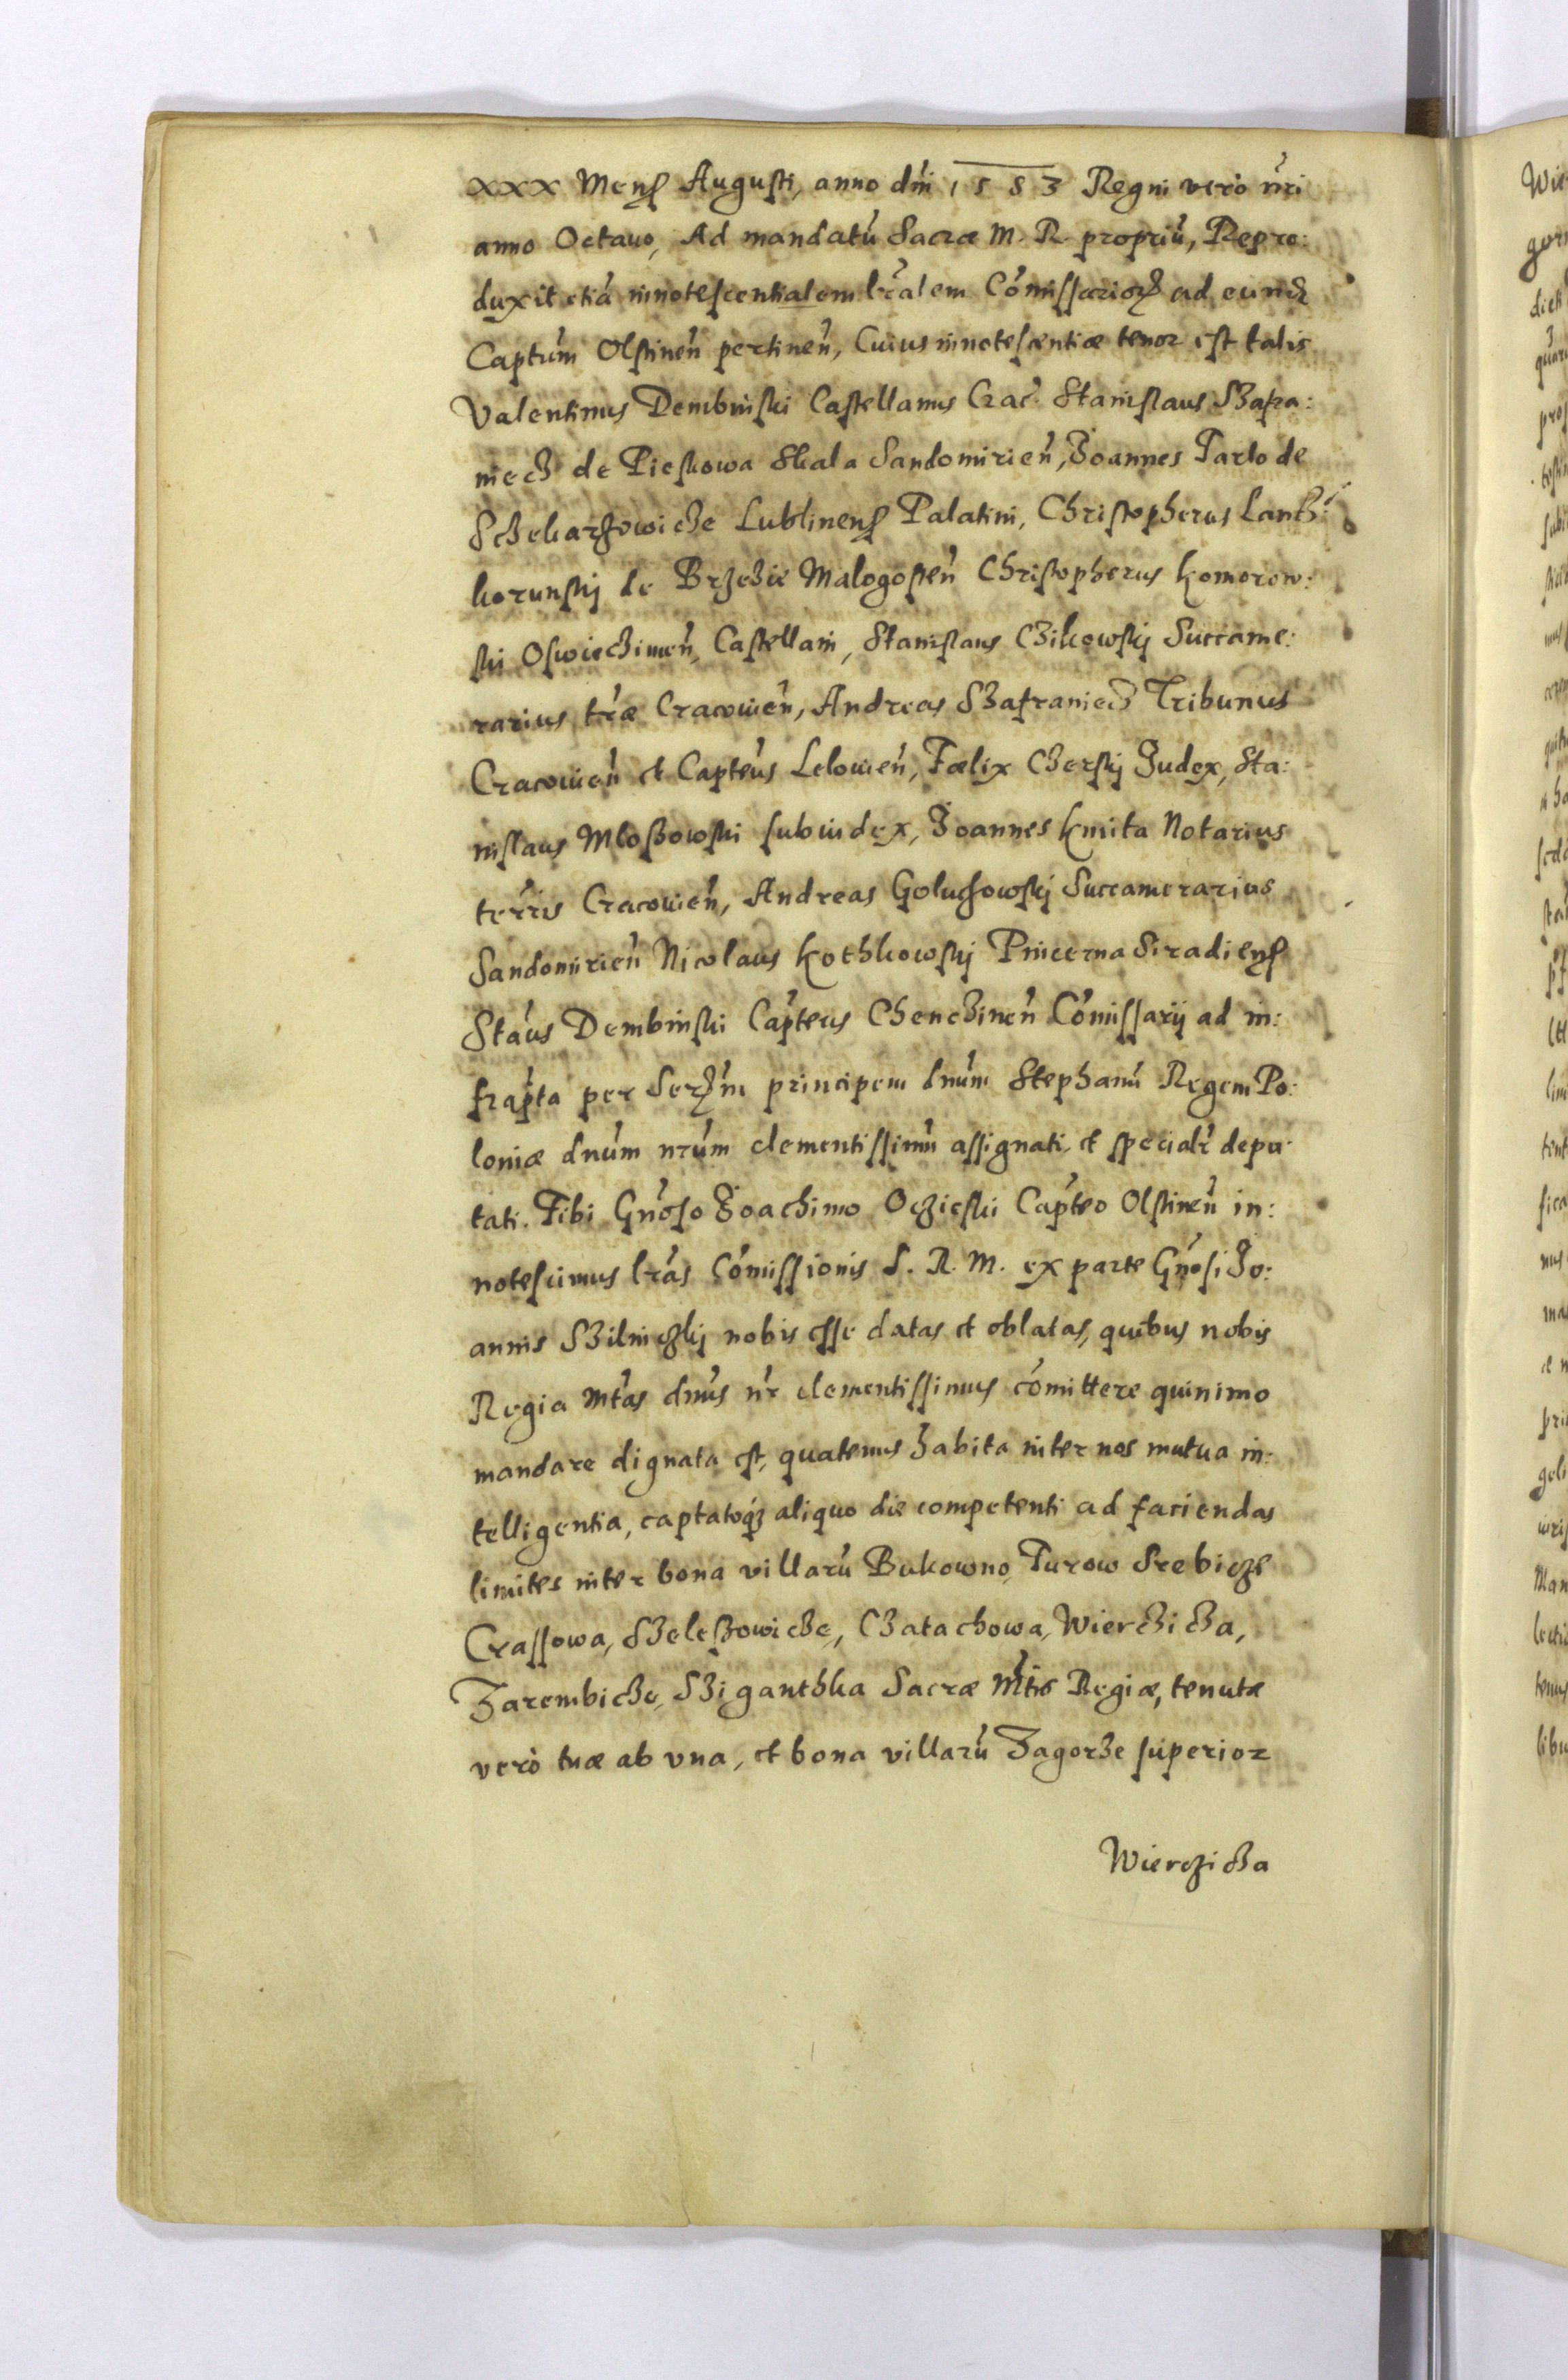 xxx Mens Augusti, anno dni 1583 Regni verò nri
anno Octauo, Ad mandatū Sacræ M. R. propriū, Repro:
duxit etiā innotescentialem lralem Cōmissarior ad eund
Captum Olstinen pertinen, Cuius innotescentiæ tenor est talis
Valentinus Dembinski Castellanus Crac. Stanislaus Szafra:
niecz de Pieskowa Skala Sandomirien, Joannes Tarlo de
Sczekarzowicze Lublinens Palatini, Christopherus Lancz:
korunskj de Brzezie Malogosten Christopherus Komorow:
ski Oswieczimen, Castellani, Stanislaus Czikowskj Succame:
rarius træ Cracouien, Andreas Szafraniecz Tribunus
Cracouien et Capteus Lelouien, Fælix Czerskj Judex, Sta:
nislaus Mloszowski subiudex, Joannes Kmita Notarius
terris Cracouien, Andreas Goluchowskj Succamerarius
Sandomirien Nicolaus Kothkowskj Pincerna Siradiens
Staus Dembinski Capteus Chenczinen Cōmissarij ad in:
frapta per Serm principem dnum Stephanū Regem Po:
loniæ dnum nrum clementissimū assignati, et specialr depu
tati. Tibi Gnoso Joachimo Oczieski Capteo Olstinen in:
notescimus lras Cōmissionis S. R. M. ex parte Gnosi Jo:
annis Szilniczkj nobis esse datas et oblatas, quibus nobis
Regia Mtas dnus nr clementissimus cōmittere quinimo
mandare dignata est, quatenus habita inter nos mutua in:
telligentia, captatoq aliquo die competenti ad faciendas
limites inter bona villarū Bukowno, Turow Srebicze
Crassowa, Szeleszowicze, Czatachowa, Wierczicza,
Zarembicze, Sziganthka Sacræ Mtis Regiæ, tenutæ
verò tuæ ab vna, et bona villarū Zagorze superior
Wierczicza